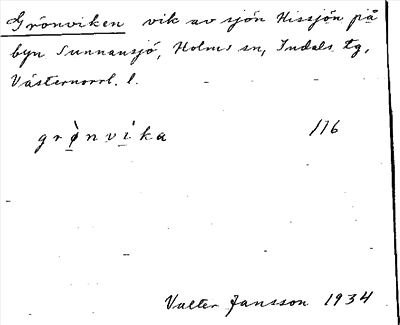 Grönviken vik av sjön Hissjön på
byn Sunnansjö, Holms sn, Indals tg,
Västernorrl. l.
grø̀nvi̇ka 116
Valter Jansson 1934